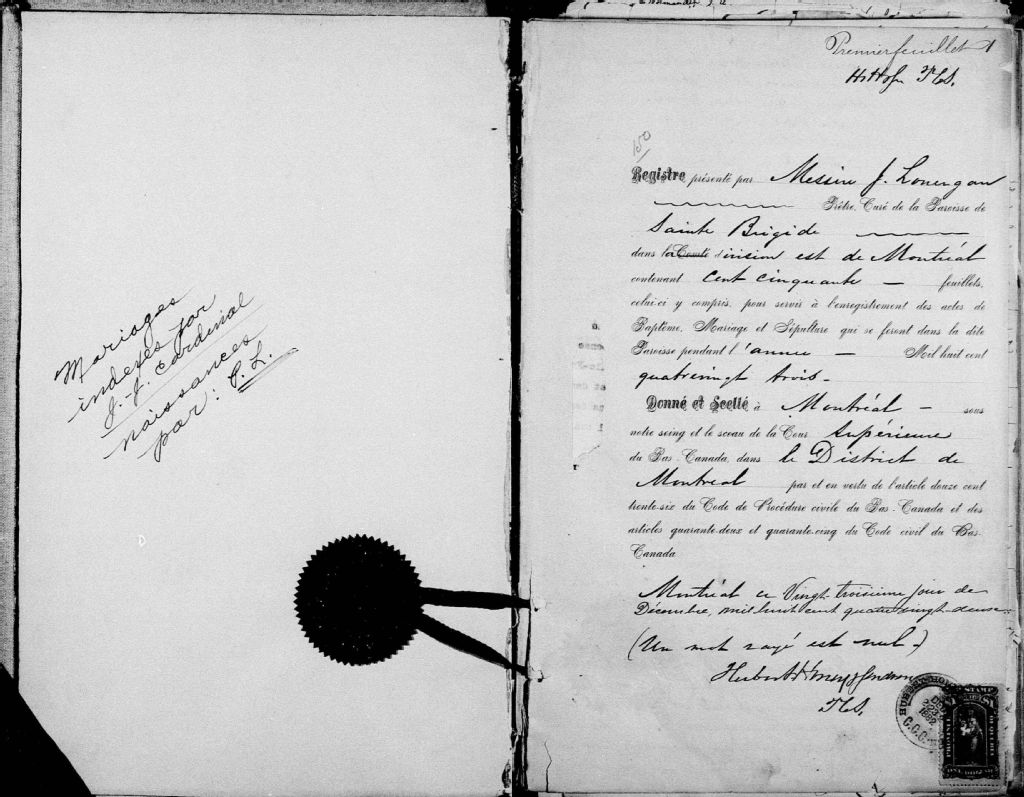 Mariages
indexés par
J.-J. Cardinal
naissances
par: P. L.
Premier feuillet 1
150
Registre présenté par Messire J. Lonergan
Prêtre, Curé de la Paroisse de
Sainte Brigide
dans la Comté division est de Montréal
contenant cent cinquante — feuillets,
celui-ci y compris, pour servir à l'enregistrement des actes de
Baptême, Mariage et Sépulture qui se feront dans la dite
Paroisse pendant l'année — Mil huit cent
quatrevingt trois -
Donné et Scellé à Montréal — sous
notre seing et le sceau de la Cour Supérieure
du Bas-Canada, dans le District de
Montréal par et en vertu de l'article douze cent
trente-six du Code de Procédure civile du Bas-Canada et des
articles quarante-deux et quarante-cinq du Code civil du Bas-
Canada
Montréal ce Vingt-troisième jour de
Décembre, mil huit cent quatre vingt-deux.
(Un mot rayé est nul.)
STAMP
PROVINCE OF QUEBEC